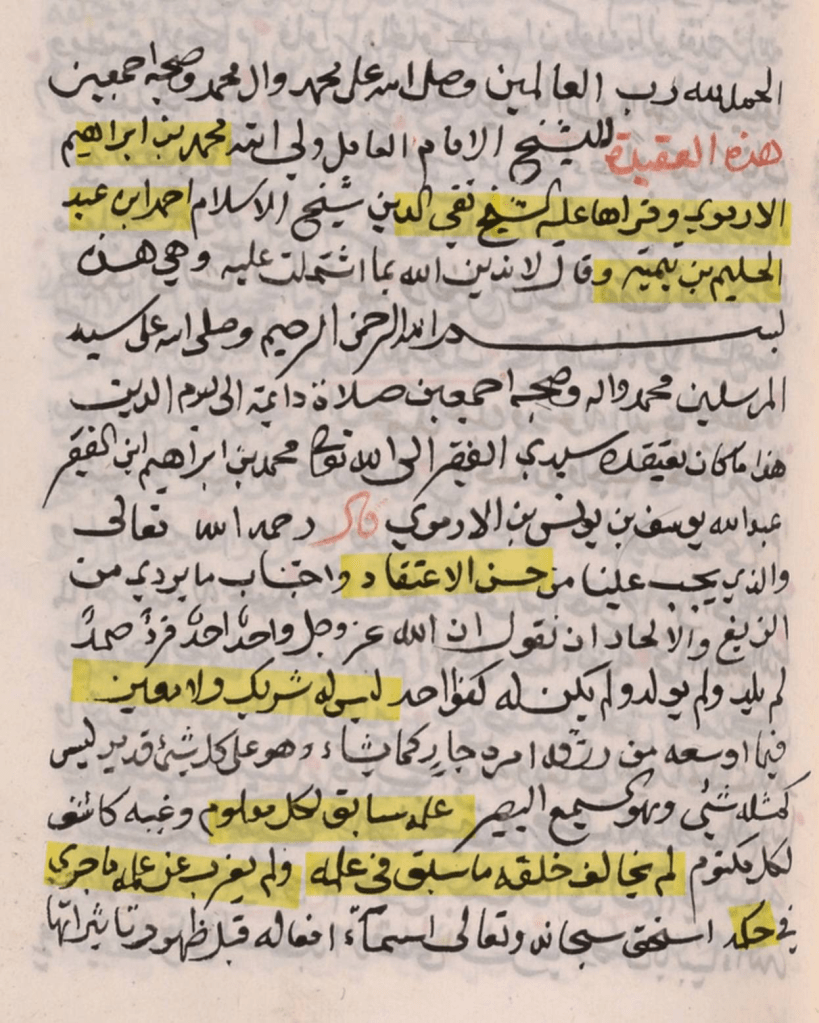 الحمد لله رب العالمين وصلى الله على محمد وال محمد وصحبه اجمعين
هذه العقيدة للشيخ الامام العامل ولي الله محمد بن ابراهيم
الارموي وقراها عليه الشيخ تقي الدين شيخ الاسلام احمد ابن عبد
الحليم بن تيميه وقال لا ندين الله بما اشتملت عليه وهي هذه
بسم الله الرحمن الرحيم وصلى الله على سيد
المرسلين محمد واله وصحبه اجمعين صلاة دائمة الى يوم الدين
هذا ما كان يعتقده سيدي الفقير الى الله تعالى محمد بن ابراهيم ابن الفقير
عبد الله يوسف بن يونس بن الارموي قال رحمه الله تعالى
والذي يجب علينا من حسن الاعتقاد واجتناب ما يردي من
الزيغ والالحاد ان نقول ان الله عز وجل واحدٌ احدٌ فردٌ صمدٌ
لم يلد ولم يولد ولم يكن له كفوا احد ليس له شريك ولا معين
فيما اوسعه من رزقه امره جارٍ كما يشاء وهو على كل شئ قدير ليس
كمثله شئي وهو السميع البصير علمه سابق لكل معلوم وغيبه كاشف
لكل مكتوم لم يخالف خلقه ما سبق في علمه ولم يعزب عن علمه ما جرى
في حكمه استحق سبحانه وتعالى اسمآء افعاله قبل ظهور تاثيراتها